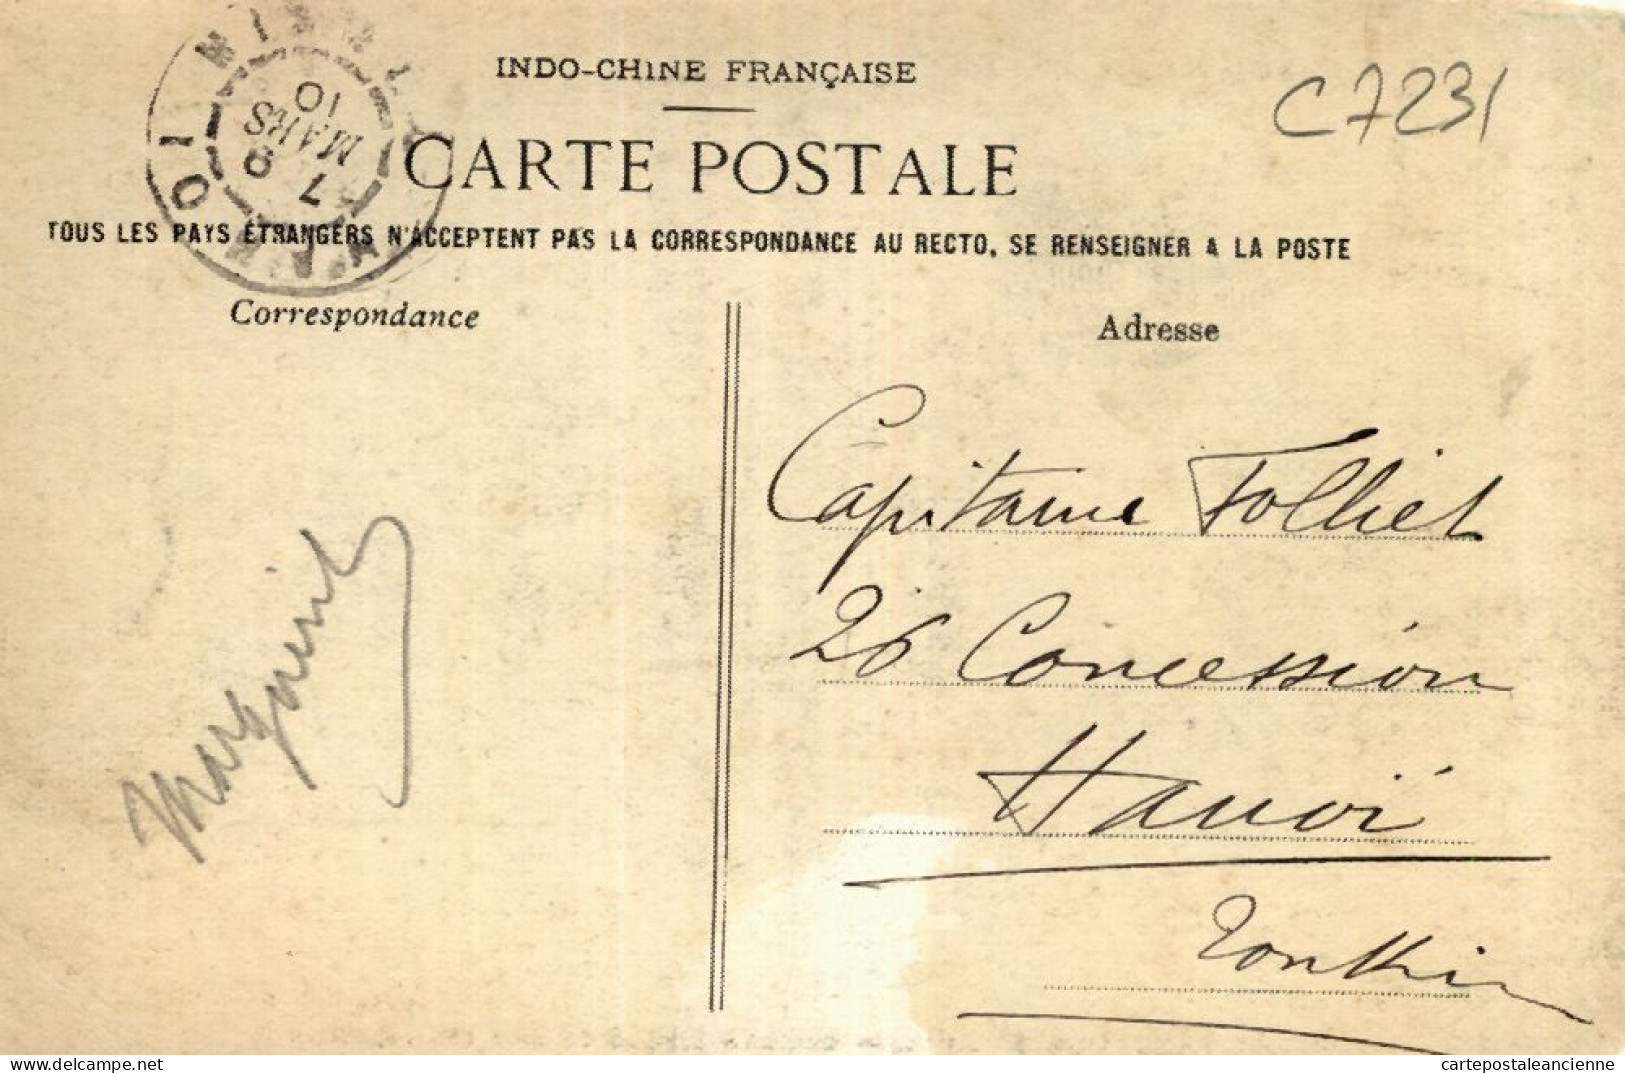 INDO-CHINE FRANÇAISE
C7231
CARTE POSTALE
TOUS LES PAYS ÉTRANGERS N'ACCEPTENT PAS LA CORRESPONDANCE AU RECTO, SE RENSEIGNER A LA POSTE
HANOI
7
MARS
10
Correspondance
Adresse
Capitaine Folliet
26 Concession
Hanoï
Tonkin
delcampe.net
cartepostaleancienne